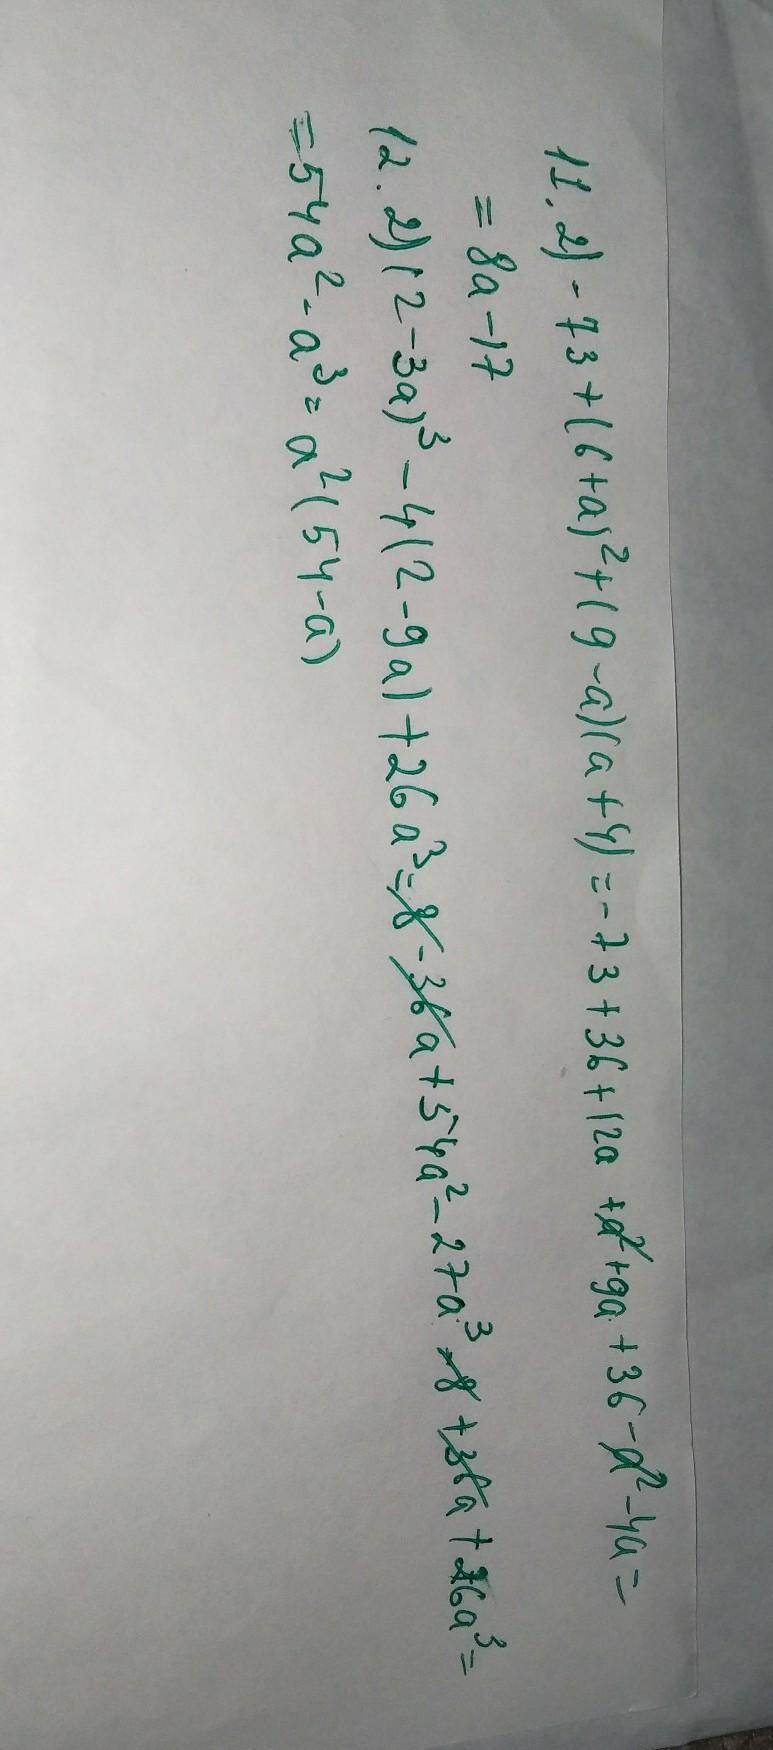 11. 2) -73+(6+a)²+(9-a)(a+4)=-73+36+12a+a²+9a+36-a²-4a=
=8a-17
12. 2) (2-3a)³-4(2-9a)+26a³=8-36a+54a²-27a³-8+36a+26a³=
=54a²-a³=a²(54-a)